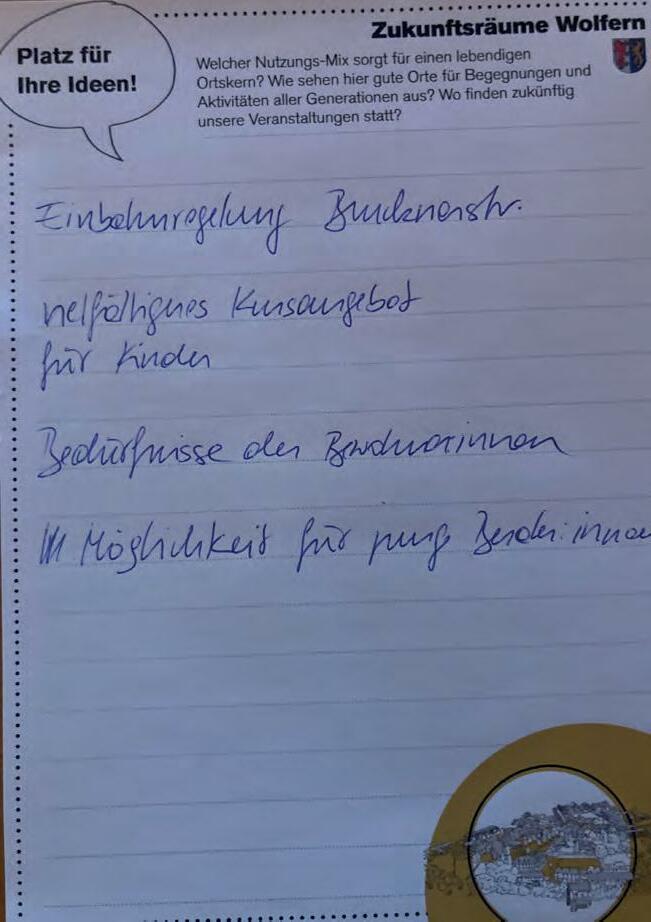 Zukunftsräume Wolfern
Platz für
Ihre Ideen!
Welcher Nutzungs-Mix sorgt für einen lebendigen
Ortskern? Wie sehen hier gute Orte für Begegnungen und
Aktivitäten aller Generationen aus? Wo finden zukünftig
unsere Veranstaltungen statt?
Einbahnregelung Brucknerstr.
vielfältiges Kursangebot
für Kinder
Bedürfnisse der Bewohnerinnen
Möglichkeit für jung